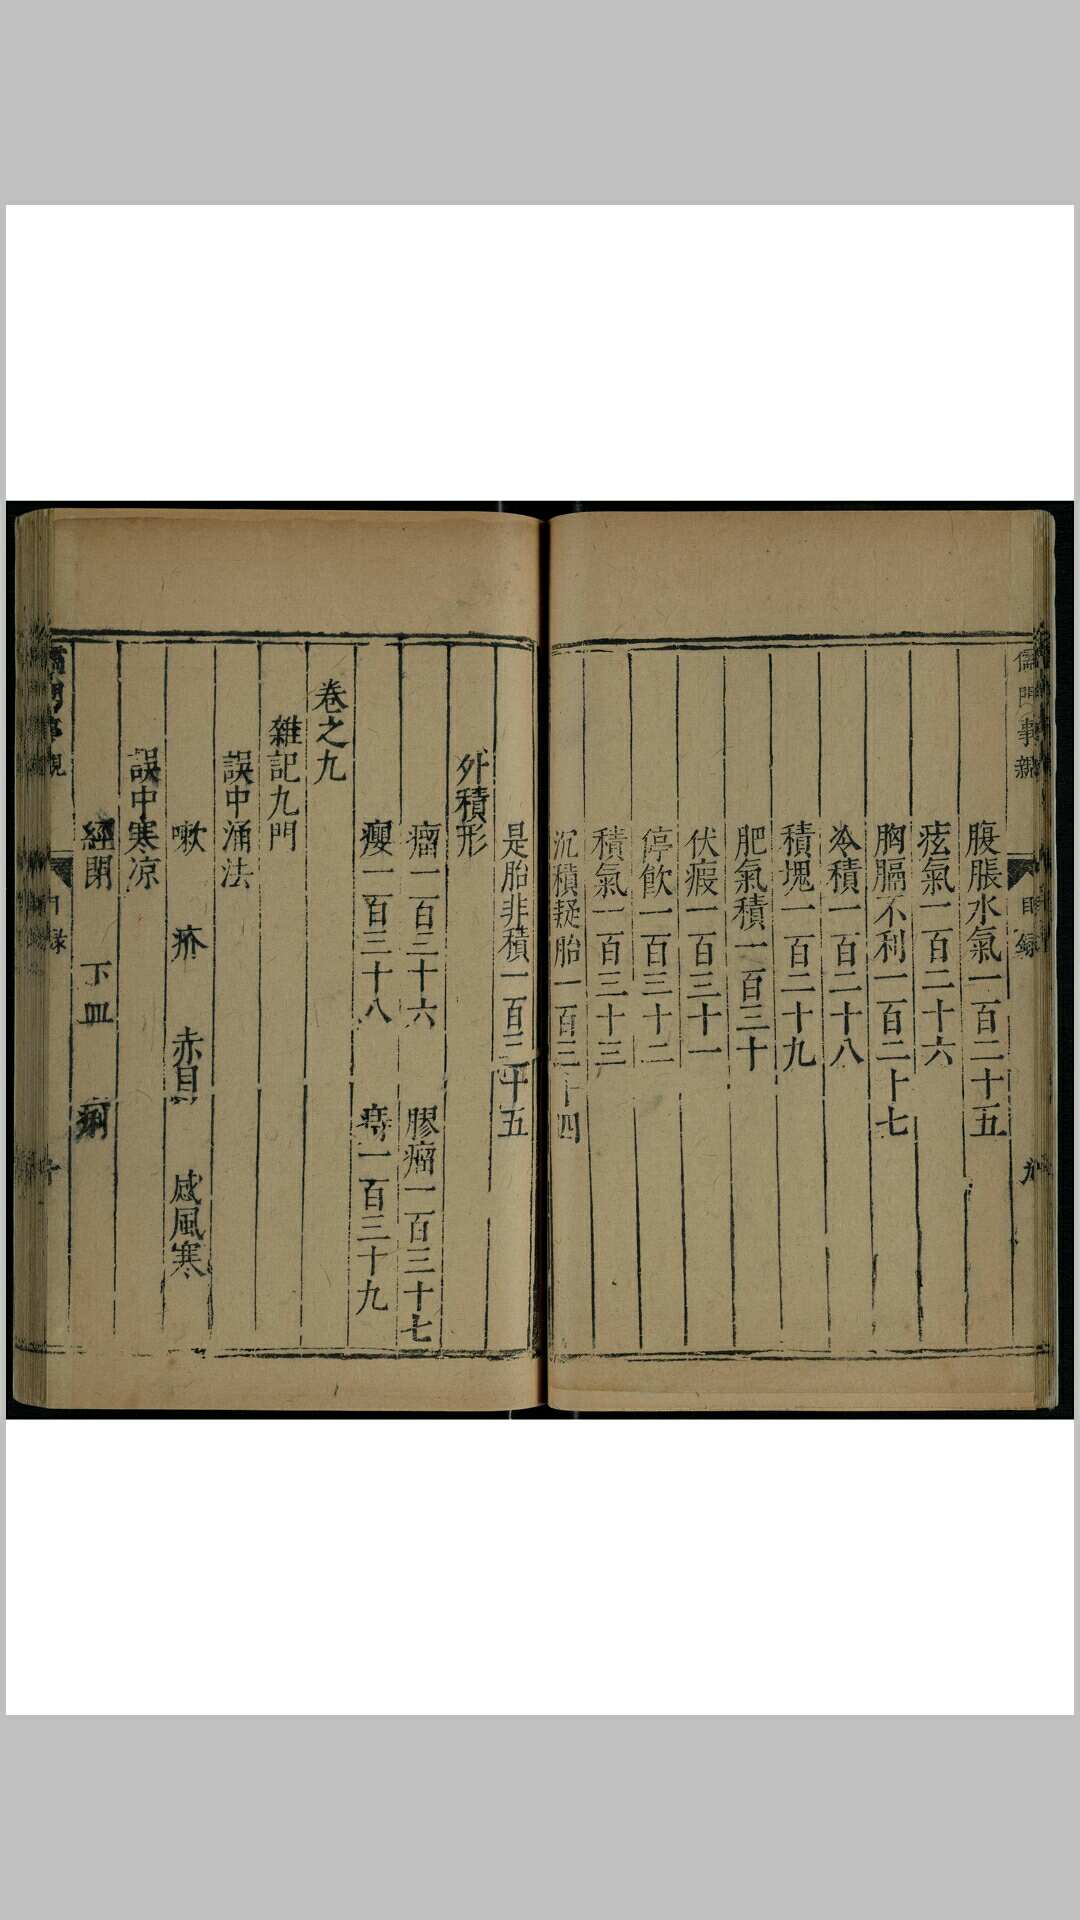 儒門事親
目錄
九
腹脹水氣一百二十五
痃氣一百二十六
胸膈不利一百二十七
冷積一百二十八
積塊一百二十九
肥氣積一百三十
伏瘕一百三十一
停飲一百三十二
積氣一百三十三
沉積疑胎一百三十四
是胎非積一百三十五
外積形
瘤一百三十六 膠瘤一百三十七
癭一百三十八 痔一百三十九
卷之九
雜記九門
誤中涌法
嗽 疥 赤目 感風寒
誤中寒凉
經閉 下血 痢
事親
目錄
十